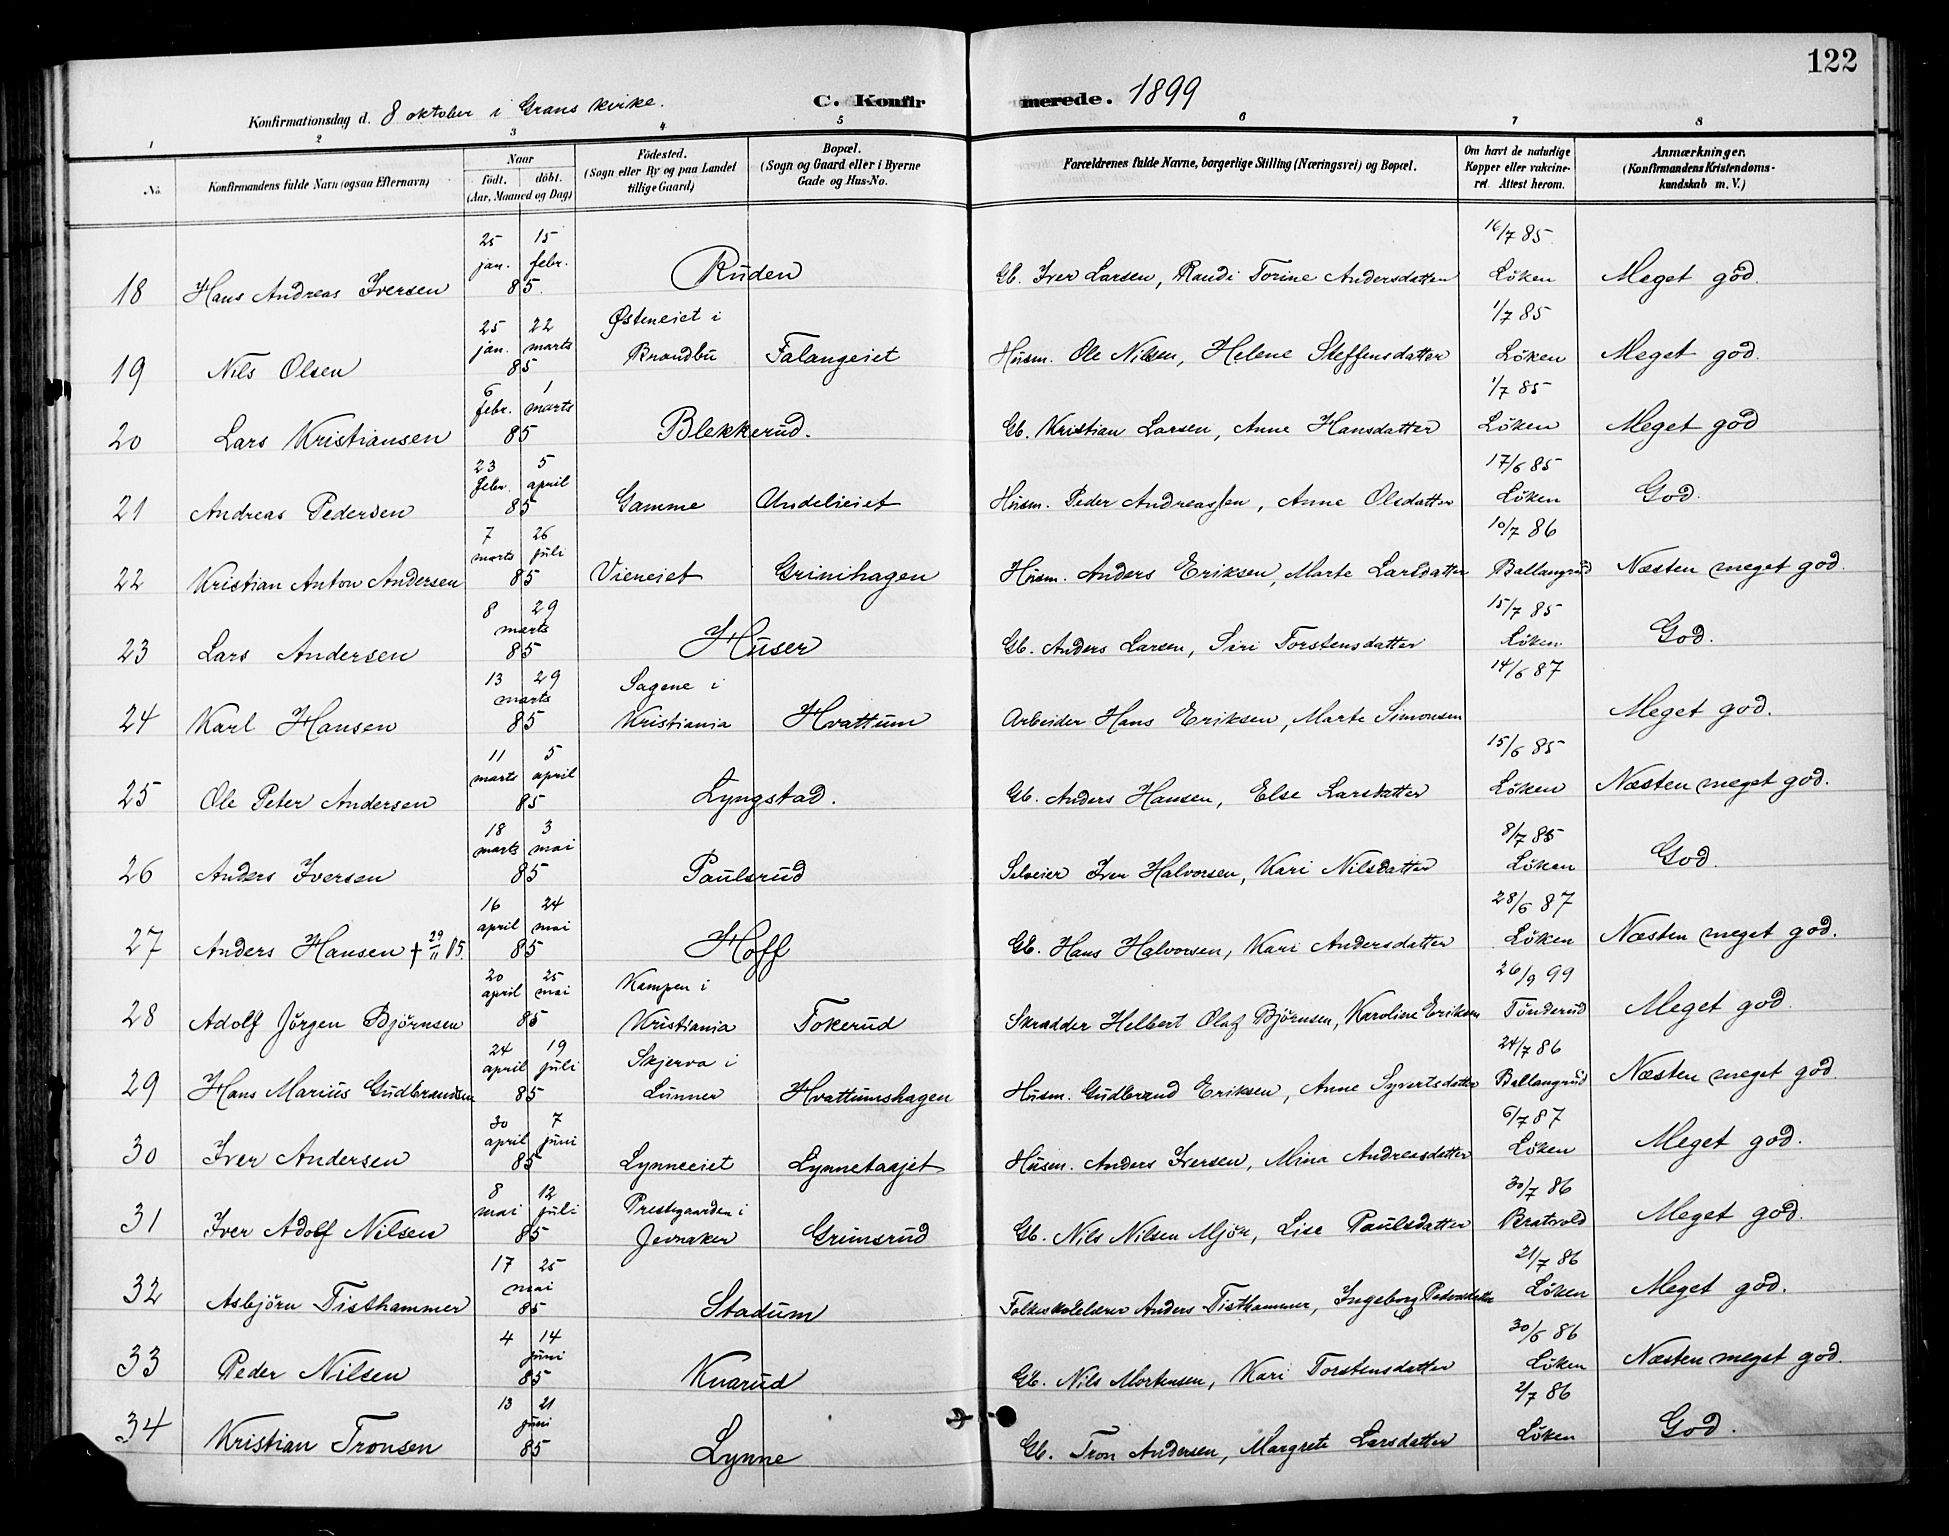 122
Konfirmationsdag d. 8 oktober i Grans kirke. C. Konfirmerede. 1899
1 2 3 4 5 6 7 8
No. Konfirmandens fulde Navn (ogsaa Efternavn) Naar født. døbt. (Aar, Maaned og Dag) Fødested. (Sogn eller By og paa Landet tillige Gaard) Bopæl. (Sogn og Gaard eller i Byerne Gade og Hus-No. Forældrenes fulde Navne, borgerlige Stilling (Næringsvei) og Bopæl. Om havt de naturlige Kopper eller vakcineret. Attest herom. Anmærkninger. (Konfirmandens Kristendomskundskab m. V.)
18 Hans Andreas Iversen 25 jan. 15 febr. 85. Ruden Gb. Iver Larsen, Randi Torine Andersdatter 16/7 85 Løken Meget god.
19 Nils Olsen 25 jan. 22 marts 85 Østeneiet i Brandbu Falangeiet Husm. Ole Nilsen, Helene Steffensdatter 1/7 85 Løken Meget god.
20 Lars Kristiansen 6 febr. 1 marts 85 Blekkerud. Gb. Kristian Larsen, Anne Hansdatter 1/7 85 Løken Meget god
21 Andreas Pedersen 23 febr. 5 april 85 Gamme Undelieiet Husm. Peder Andreassen, Anne Olsdatter 17/6 85 Løken God.
22 Kristian Anton Andersen 7 marts 26 juli 85 Vieneiet Grinihagen Husm. Anders Eriksen, Marte Larsdatter 10/7 86 Ballangrud Næsten meget god.
23 Lars Andersen 8 29 marts 85 Huser Gb. Anders Larsen, Siri Torstensdatter 15/7 85 Løken God.
24 Karl Hansen 13 29 marts 85 Sagene i Kristiania Hvattum Arbeider Hans Eriksen, Marte Simonsen 14/6 87 Meget god.
25 Ole Peter Andersen 11 marts 5 april 85 Lyngstad. Gb. Anders Hansen, Else Larsdatter 15/6 85 Løken Næsten meget god.
26 Anders Iversen 18 marts 3 mai 85 Paulsrud Selveier Iver Halvorsen, Kari Nilsdatter 8/7 85 Løken God.
27 Anders Hansen + 29/11 15. 16 april 24 mai 85 Hoff Gb. Hans Halvorsen, Kari Andersdatter 28/6 87 Løken Næsten meget god.
28 Adolf Jørgen Bjørnsen 20 april 25 mai 85 Kampen i Kristiania Tokerud Skrædder Helbert Olaf Bjørnsen, Karoline Eriksen 26/9 99 Tønderud Meget god.
29 Hans Marius Gudbrandsen 24 april 19 juli 85 Skjerva i Lunner Hvattumshagen Husm. Gudbrand Eriksen, Anne Syvertsdatter 24/7 86 Ballangrud Næsten meget god
30 Iver Andersen 30 april 7 juni 85 Lynneeiet Lynnetaajet Husm. Anders Iversen, Mina Andreasdatter 6/7 87 Løken Meget god.
31 Iver Adolf Nilsen 8 mai 12 juli 85 Prestegaarden i Jevnaker Grimsrud Gb. Nils Nilsen Mjør, Lise Paulsdatter 30/7 86 Bratvold Meget god.
32 Asbjørn Tisthammer 17 25 mai 85 Stadum Folkeskolelærer Anders Tisthammer, Ingeborg Pedersdatter 21/7 86 Løken Meget god.
33 Peder Nilsen 4 14 juni 85 Knarud Gb. Nils Mortensen, Kari Torstensdatter 30/6 86 Løken Næsten meget god.
34 Kristian Tronsen 13 21 juni 85 Lynne Gb. Tron Andersen, Margrete Larsdatter 2/7 86 Løken God.